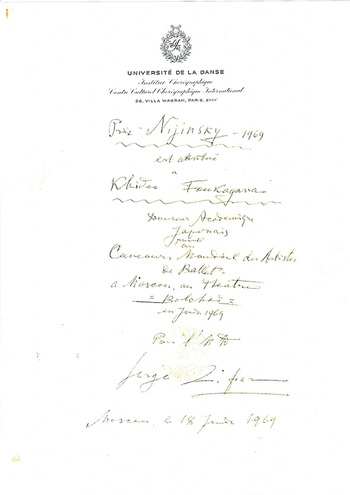 UNIVERSITÉ DE LA DANSE
Institut Chorégraphique
Centre Culturel Chorégraphique International
26, VILLA WAGRAM, PARIS,
Prix Nijinsky - 1969
est attribué
à
Khidéo Foukagawa
Danseur Académique
Japonais
au
Concours Mondial des Artistes
de Ballet
a Moscou, au Théâtre
= Bolchoï =
en Juin 1969
Pour l'
Serge Lifar
Moscou, le 18 Juin 1969